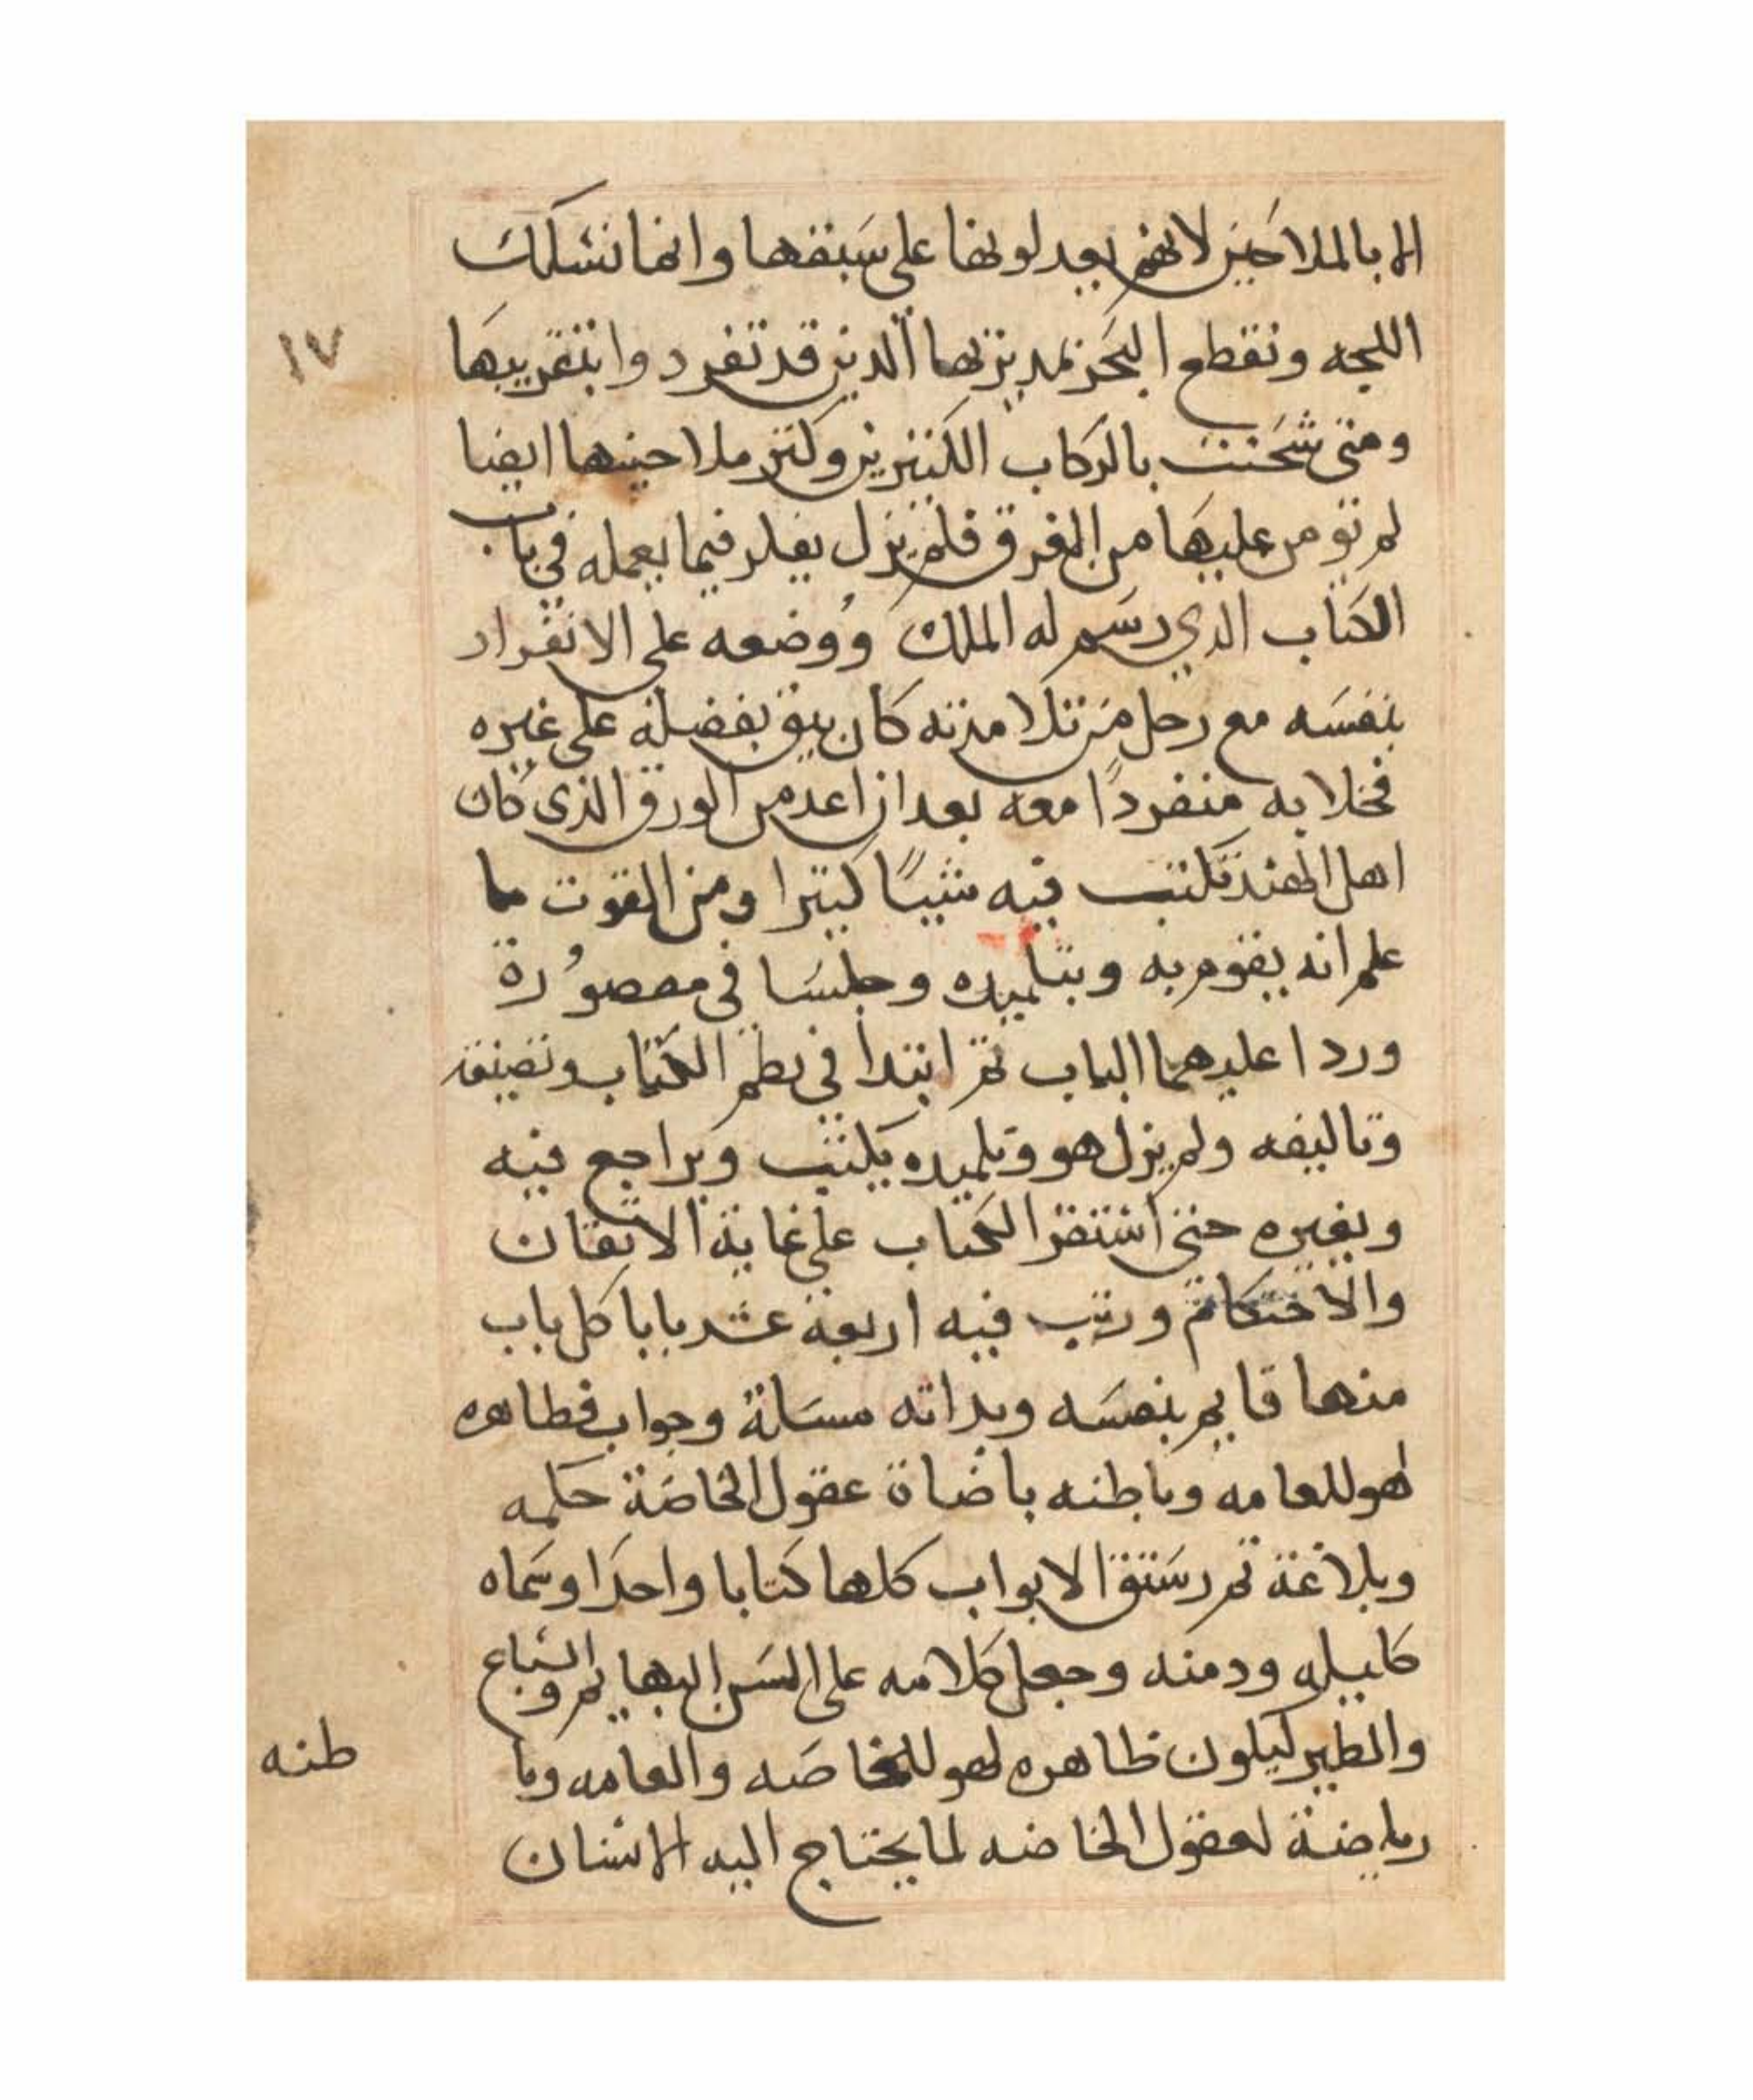 الا بالملاحين لانهم يعدلونها على سبقها وانما نسلك
اللجه ونقطع البحر بمديرتها الذين قد تفردوا بتقريبها
ومتى شحنت بالركاب الكثيرين وكثر ملاحينها ايضا
لم تومن عليها من الغرق فلم يزل يفكر فيما يعمله في باب
الكتاب الذي رسم له الملك ووضعه على الانفراد
بنفسه مع رجل من تلامذته كان يثق بفضله على غيره
فخلا به منفردًا معه بعد ان اعد من الورق الذي كان
اهل الهند تكتب فيه شيئًا كثيرا ومن القوت ما
علم انه يقوم به وبتلميده وجلسا في مقصورة
وردا عليهما الباب ثم ابتدا في نظم الكتاب وتصنيفه
وتاليفه ولم يزل هو وتلميده يكتب ويراجع فيه
وبغيره حتى استقر الكتاب على غاية الاتقان
والاحتكام ورتب فيه اربعة عشر بابا كل باب
منها قايم بنفسه وبداته مسالة وجواب فظاهره
لهو للعامه وباطنه باضاة عقول الخاصة حكمه
وبلاغة ثم رستق الابواب كلها كتابا واحدا وسماه
كليله ودمنه وجعل كلامه على السن البهايم والسباع
والطير ليكون ظاهره لهو للخاصه والعامه وبا
رياضة لعقول الخاصه لما يحتاج اليه الانسان
١٧
طنه